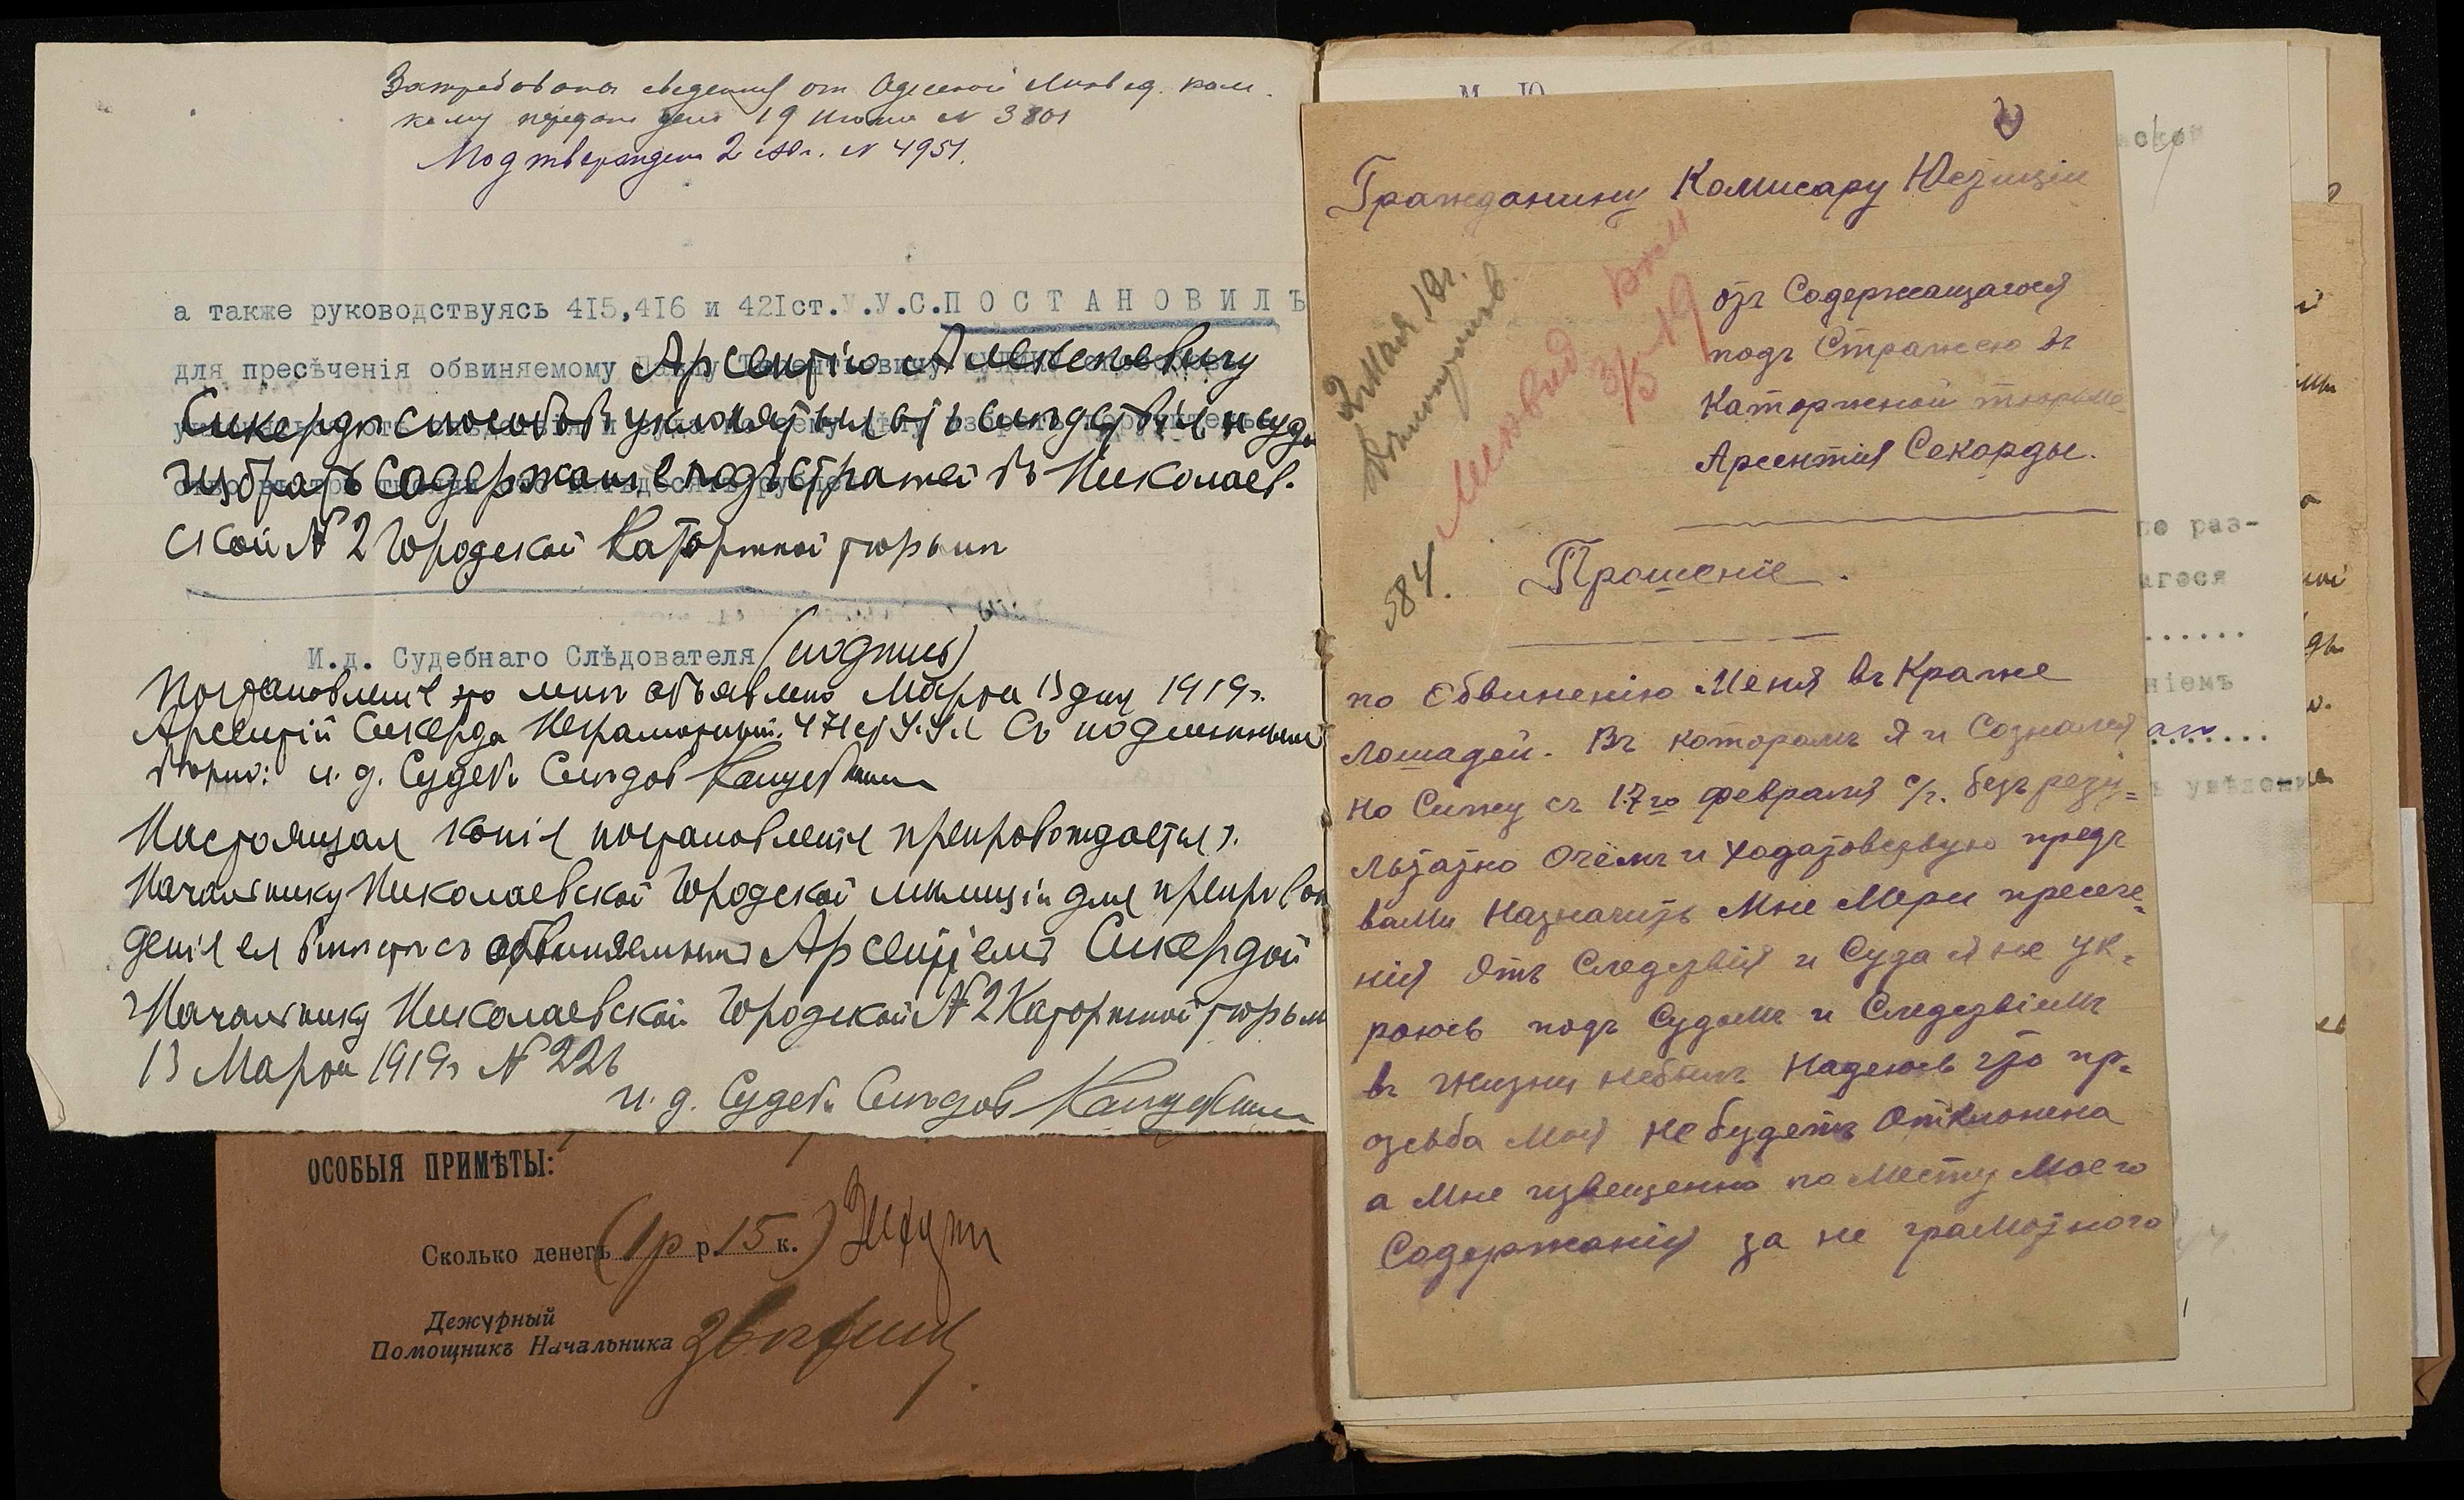 Затребованы сведения от Одесской Ликвид. ком.
кому передано дело 19 Июня N 3801
Подтверждено 2 Авг. N 4951.
а также руководствуясь 4I5,4I6 и 42Iст.У.У.С.П О С Т А Н О В И Л Ъ
для пресѣченія обвиняемому Арсентію Алексѣевичу
Сикердѣ способовъ уклоняться отъ слѣдствія и суда
избрать содержаніе подъ стражей въ Николаев-
ской № 2 Городской Каторжной тюрьмѣ
И.д. Судебнаго Слѣдователя (подпись)
Постановленіе это мнѣ объявлено Марта 13 дня 1919 г.
Арсентій Сикерда Неграмотный. 474 ст У.У.С Съ подлиннымъ
вѣрно: и. д. Судеб. Слѣдов
Настоящая копія постановленія препровождается
Начальнику Николаевской Городской милиціи для препровож
денія ея вмѣстѣ съ обвиняемымъ Арсентіемъ Сикердой
Начальнику Николаевской Городской № 2 Каторжной тюрьм
13 Марта 1919 г № 226
и. д. Судеб. Слѣдов
ОСОБЫЯ ПРИМѢТЫ:
Сколько денегъ (1р р. 15 к.)
Дежурный
Помощникъ Начальника
М. Ю.
Гражданину Комисару Юстиціи
отъ Содержащагося
подъ Стражею въ
Каторжной тюрьме
Арсентія Секорды.
2 Мая 19 г.
Ликвид
3/5-19
584.
Прошеніе.
по Обвиненію Меня въ Краже
Лошадей. Въ которомъ Я и Сознался
но Сижу съ 17го февраля с/г. безъ резу=
льтатно Очёмъ и ходатовствую предъ
вами Назначить Мне Мери пресече=
нія Отъ Следствія и Суда я не ук=
роюсь подъ Судомъ и Следствіемъ
въ жизни небылъ Надеюсь что пр=
озьба Моя не будетъ Отклонена
а Мне извещенно по Месту Моего
Содержанія за не грамотного
се раз-
агося
ніемъ